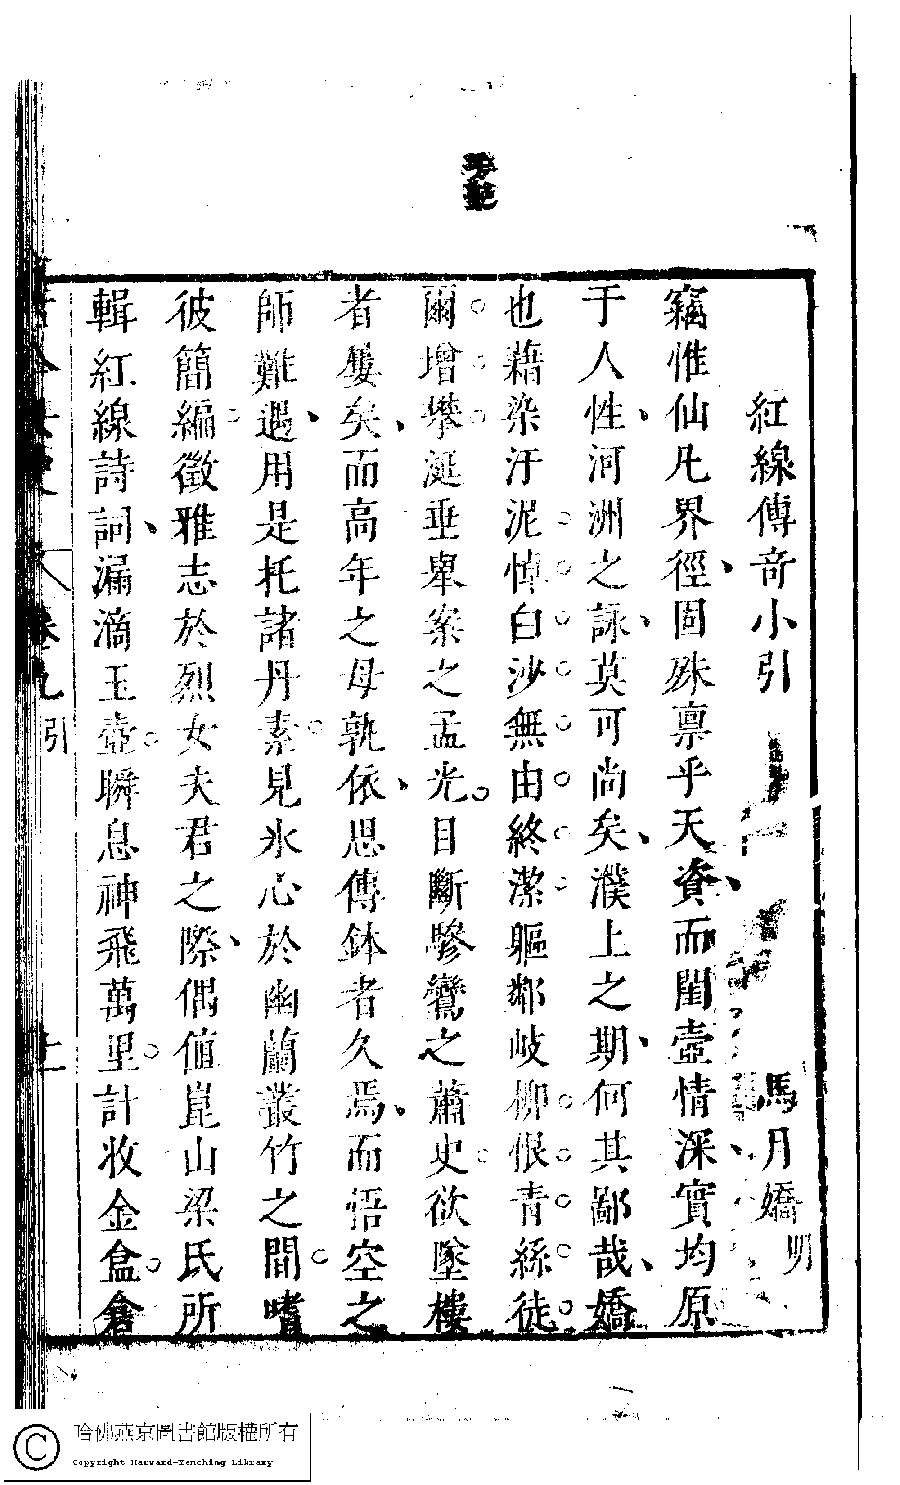 紅線傳奇小引
馬月嬌 明
竊惟仙凡界徑固殊禀乎天資而閨壼情深實均原
于人性河洲之詠莫可尚矣濮上之期何其鄙哉嬌
也藉染汙泥悼白沙無由終潔軀鄰岐柳恨青絲徒
爾增攀涎垂舉案之孟光目斷驂鸞之蕭史欲墜樓
者屢矣而高年之母孰依思傳鉢者久焉而悟空之
師難遇用是托諸丹素見氷心於幽蘭叢竹之間嗜
彼簡編徵雅志於烈女夫君之際偶値崑山梁氏所
輯紅線詩詞漏滴玉壺瞬息神飛萬里計收金盒倉
卷九
引
上
哈佛燕京圖書館版權所有
Copyright Harvard-Yenching Library